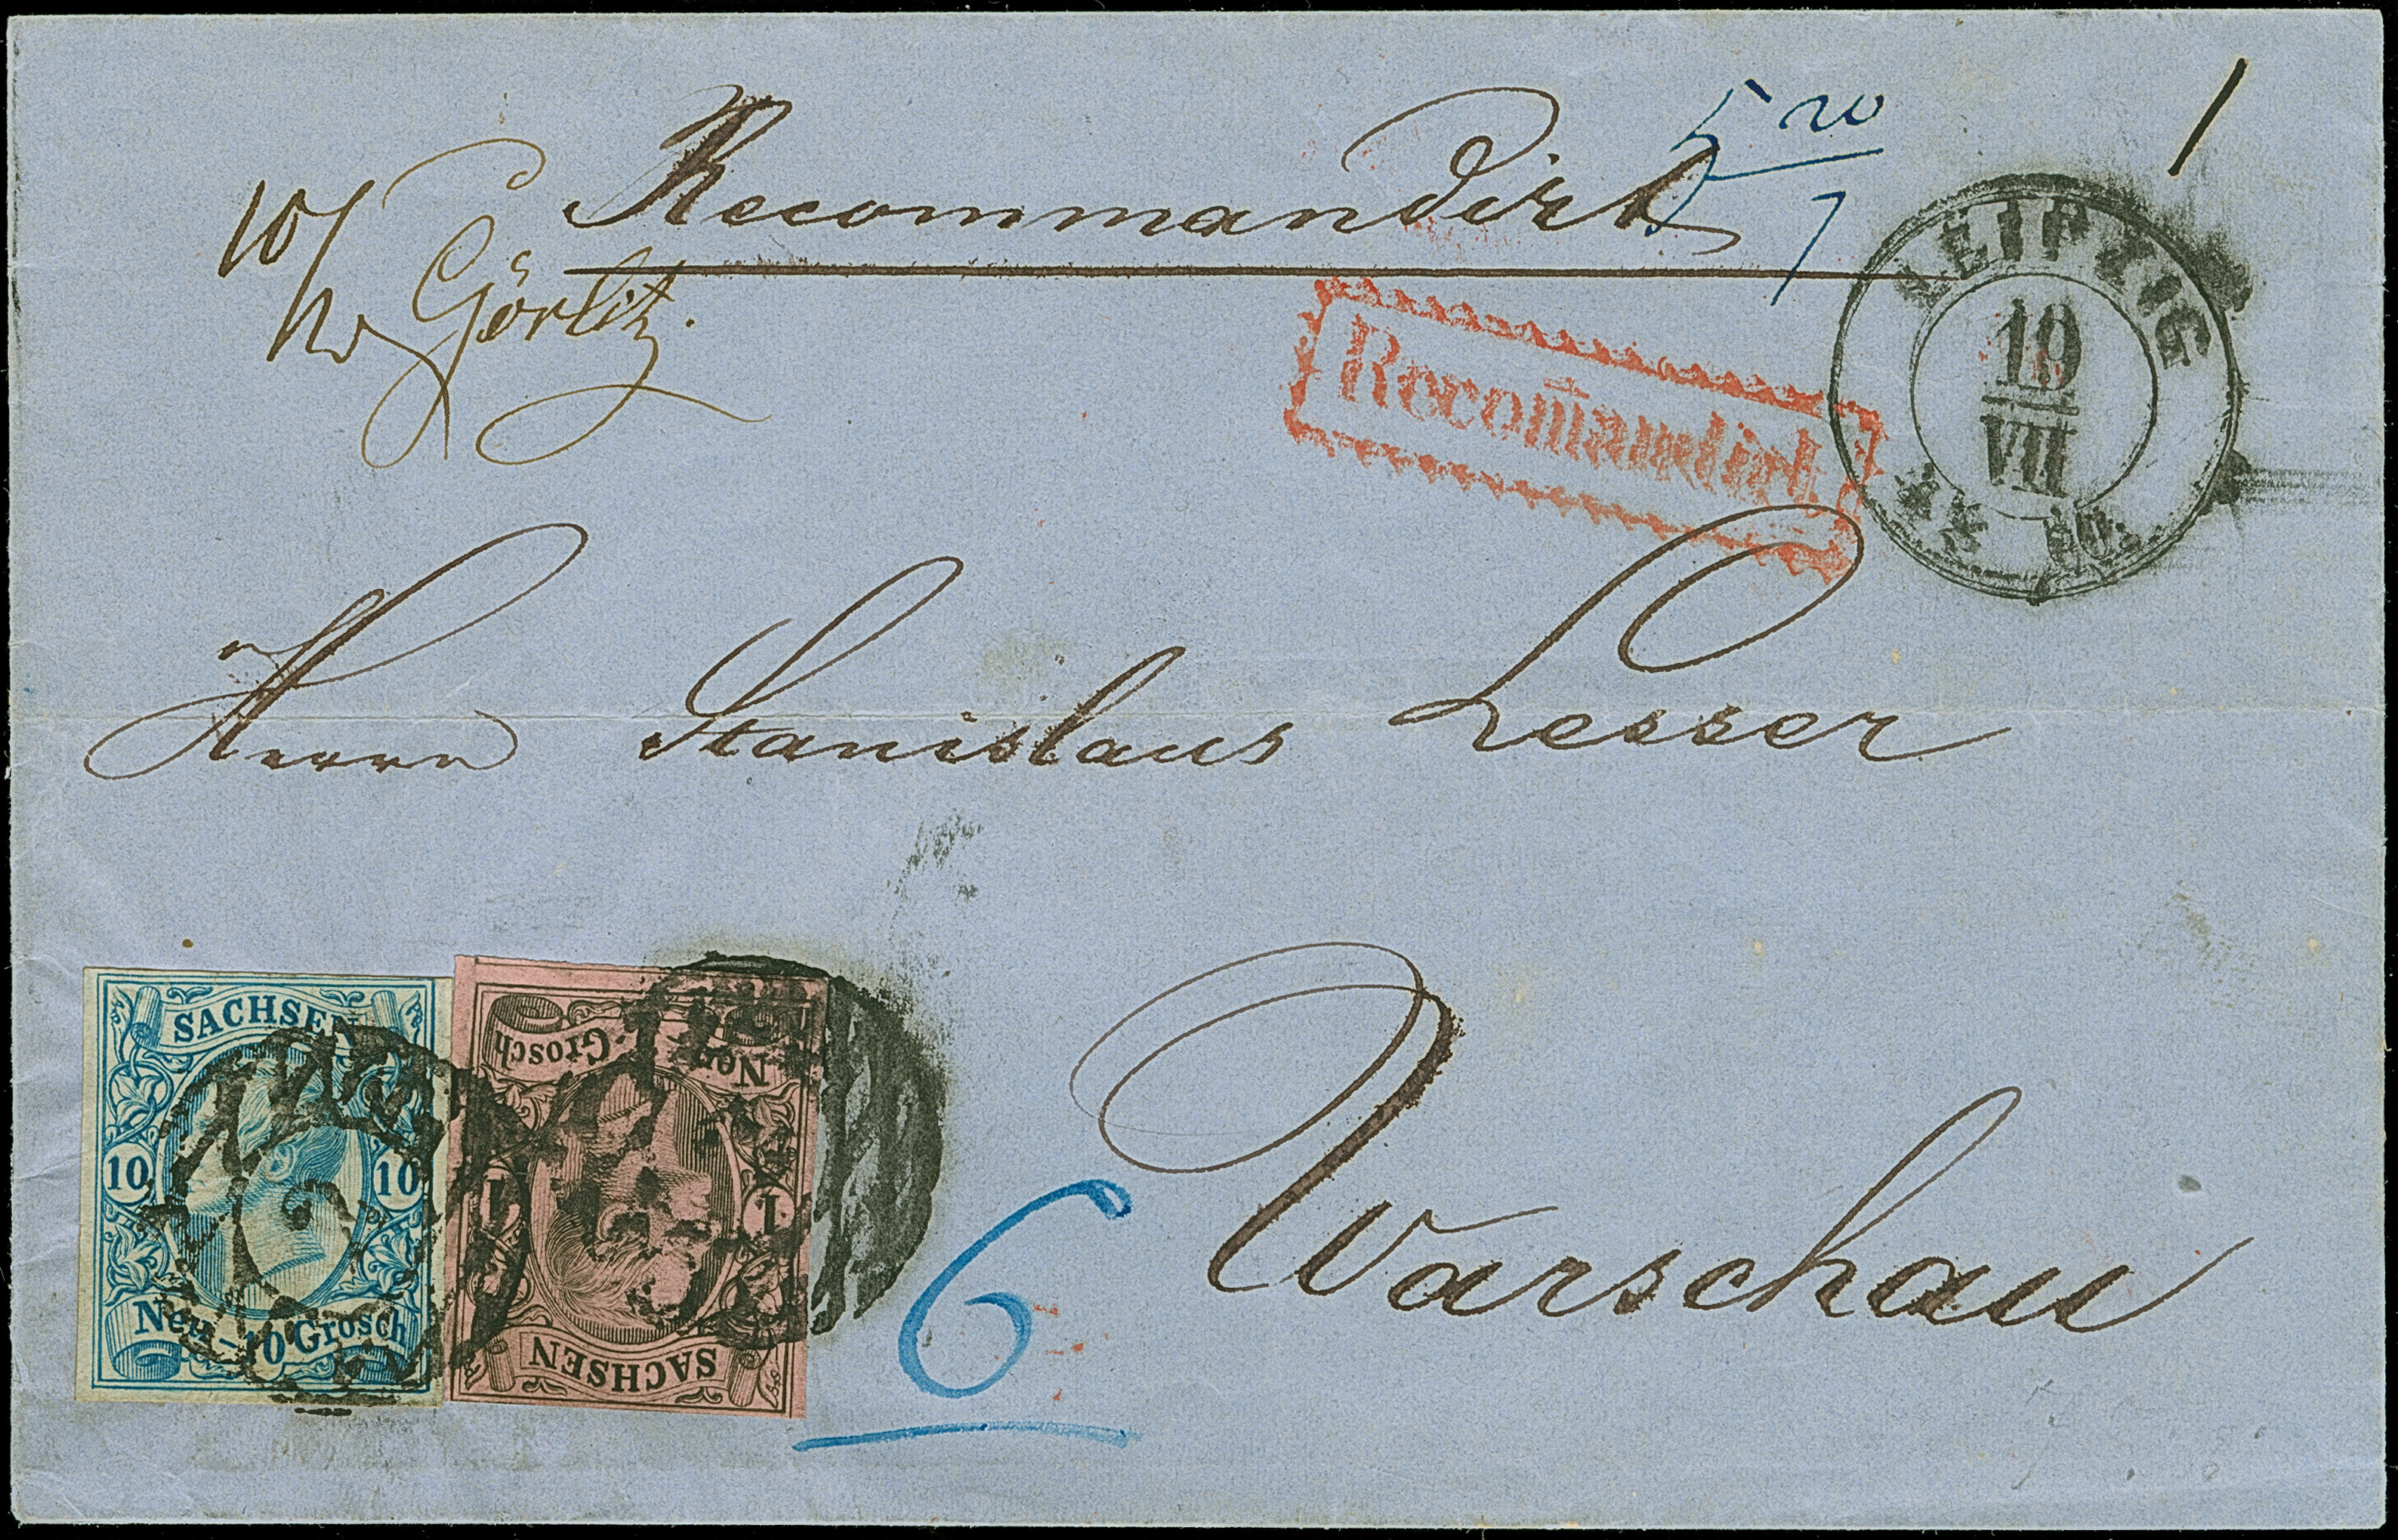 Recommandirt
5 20/7
1
10/
Nr Görlitz.
LEIPZIG
19
VII
Recom̄andirt
Herrn Stanislaus Lesser
Warschau
6
SACHSEN
10 10
Neu-10 Grosch
Neu-Grosch
1 1
SACHSEN